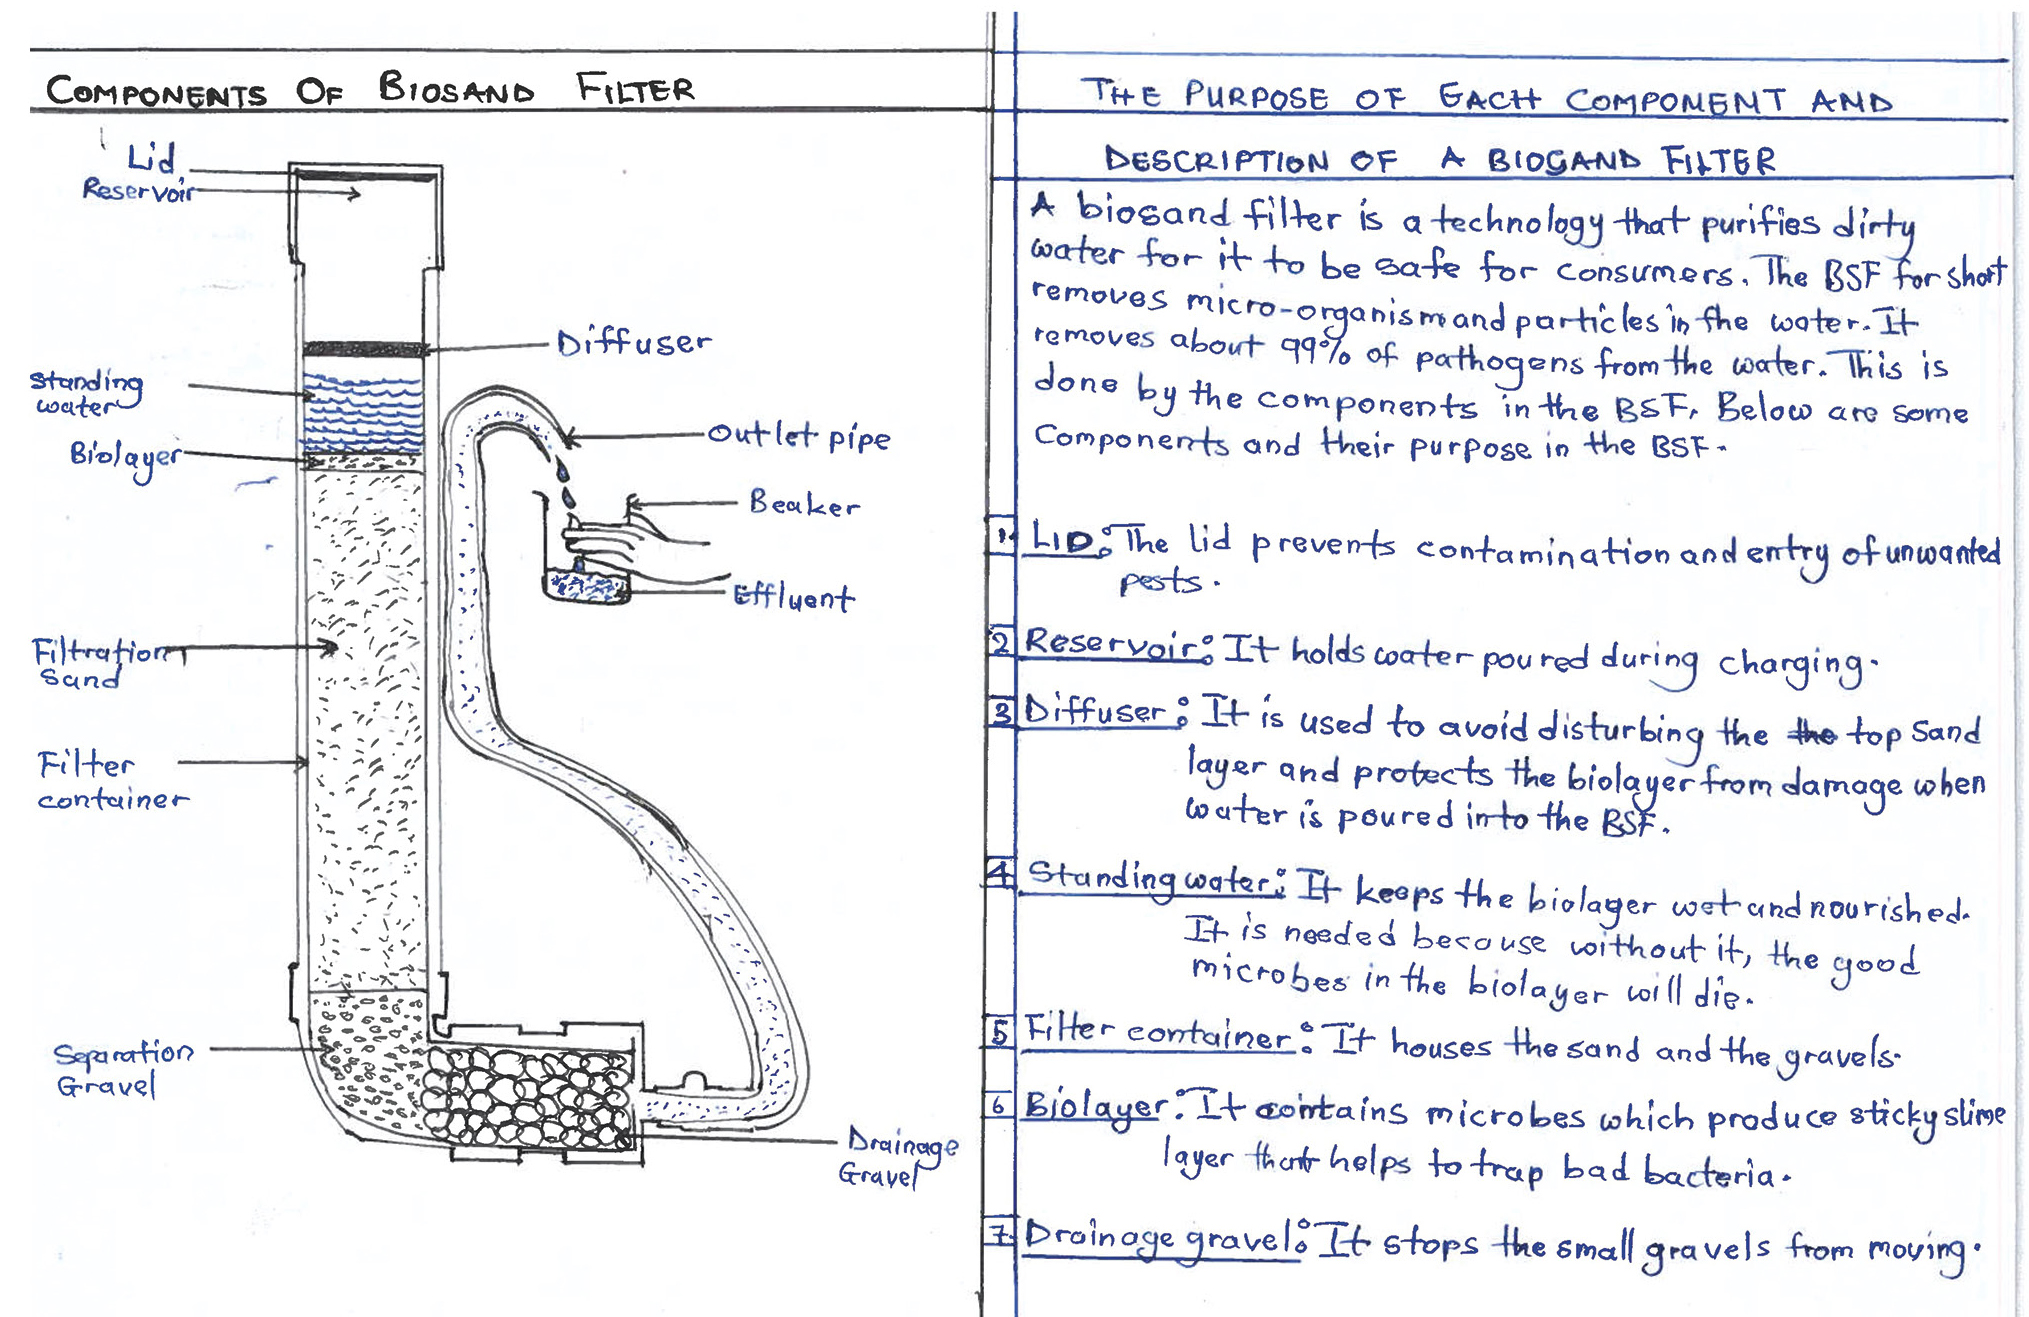 COMPONENTS OF BIOSAND FILTER
Lid
Reservoir
Diffuser
Standing
water
Outlet pipe
Biolayer
Beaker
Effluent
Filtration
Sand
Filter
container
Separation
Gravel
Drainage
Gravel
THE PURPOSE OF EACH COMPONENT AND
DESCRIPTION OF A BIOSAND FILTER
A biosand filter is a technology that purifies dirty
water for it to be safe for consumers. The BSF for short
removes micro-organism and particles in the water. It
removes about 99% of pathogens from the water. This is
done by the components in the BSF. Below are some
Components and their purpose in the BSF.
1. LID: The lid prevents contamination and entry of unwanted
pests.
2 Reservoir: It holds water poured during charging.
3 Diffuser: It is used to avoid disturbing the the top Sand
layer and protects the biolayer from damage when
water is poured into the BSF.
4 Standing water: It keeps the biolayer wet and nourished.
It is needed because without it, the good
microbes in the biolayer will die.
5 Filter container: It houses the sand and the gravels.
6 Biolayer: It contains microbes which produce sticky slime
layer that helps to trap bad bacteria.
7. Drainage gravel: It stops the small gravels from moving.